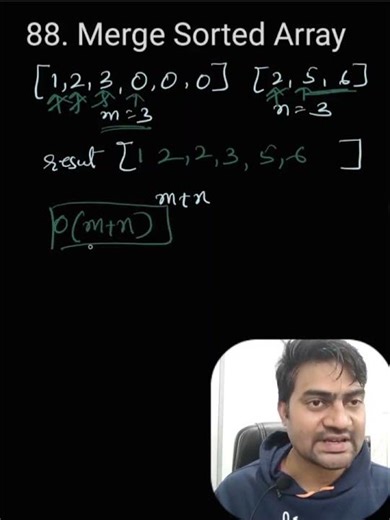 88. Merge Sorted Array
[1,2,3,0,0,0] [2,5,6]
m=3 n=3
result [1 2,2,3,5,6 ]
m+n
O(m+n)